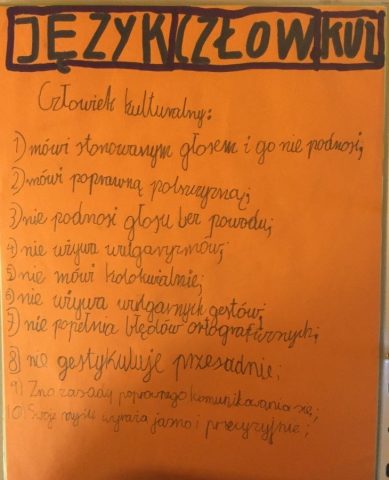 JĘZYK CZŁOW. KUL
Człowiek kulturalny:
1) mówi stonowanym głosem i go nie podnosi;
2) mówi poprawną polszczyzną;
3) nie podnosi głosu bez powodu;
4) nie używa wulgaryzmów;
5) nie mówi kolokwialnie;
6) nie używa wulgarnych gestów;
7) nie popełnia błędów ortograficznych;
8) nie gestykuluje przesadnie;
9) Zna zasady poprawnego komunikowania się;
10) Swoje myśli wyraża jasno i precyzyjnie;